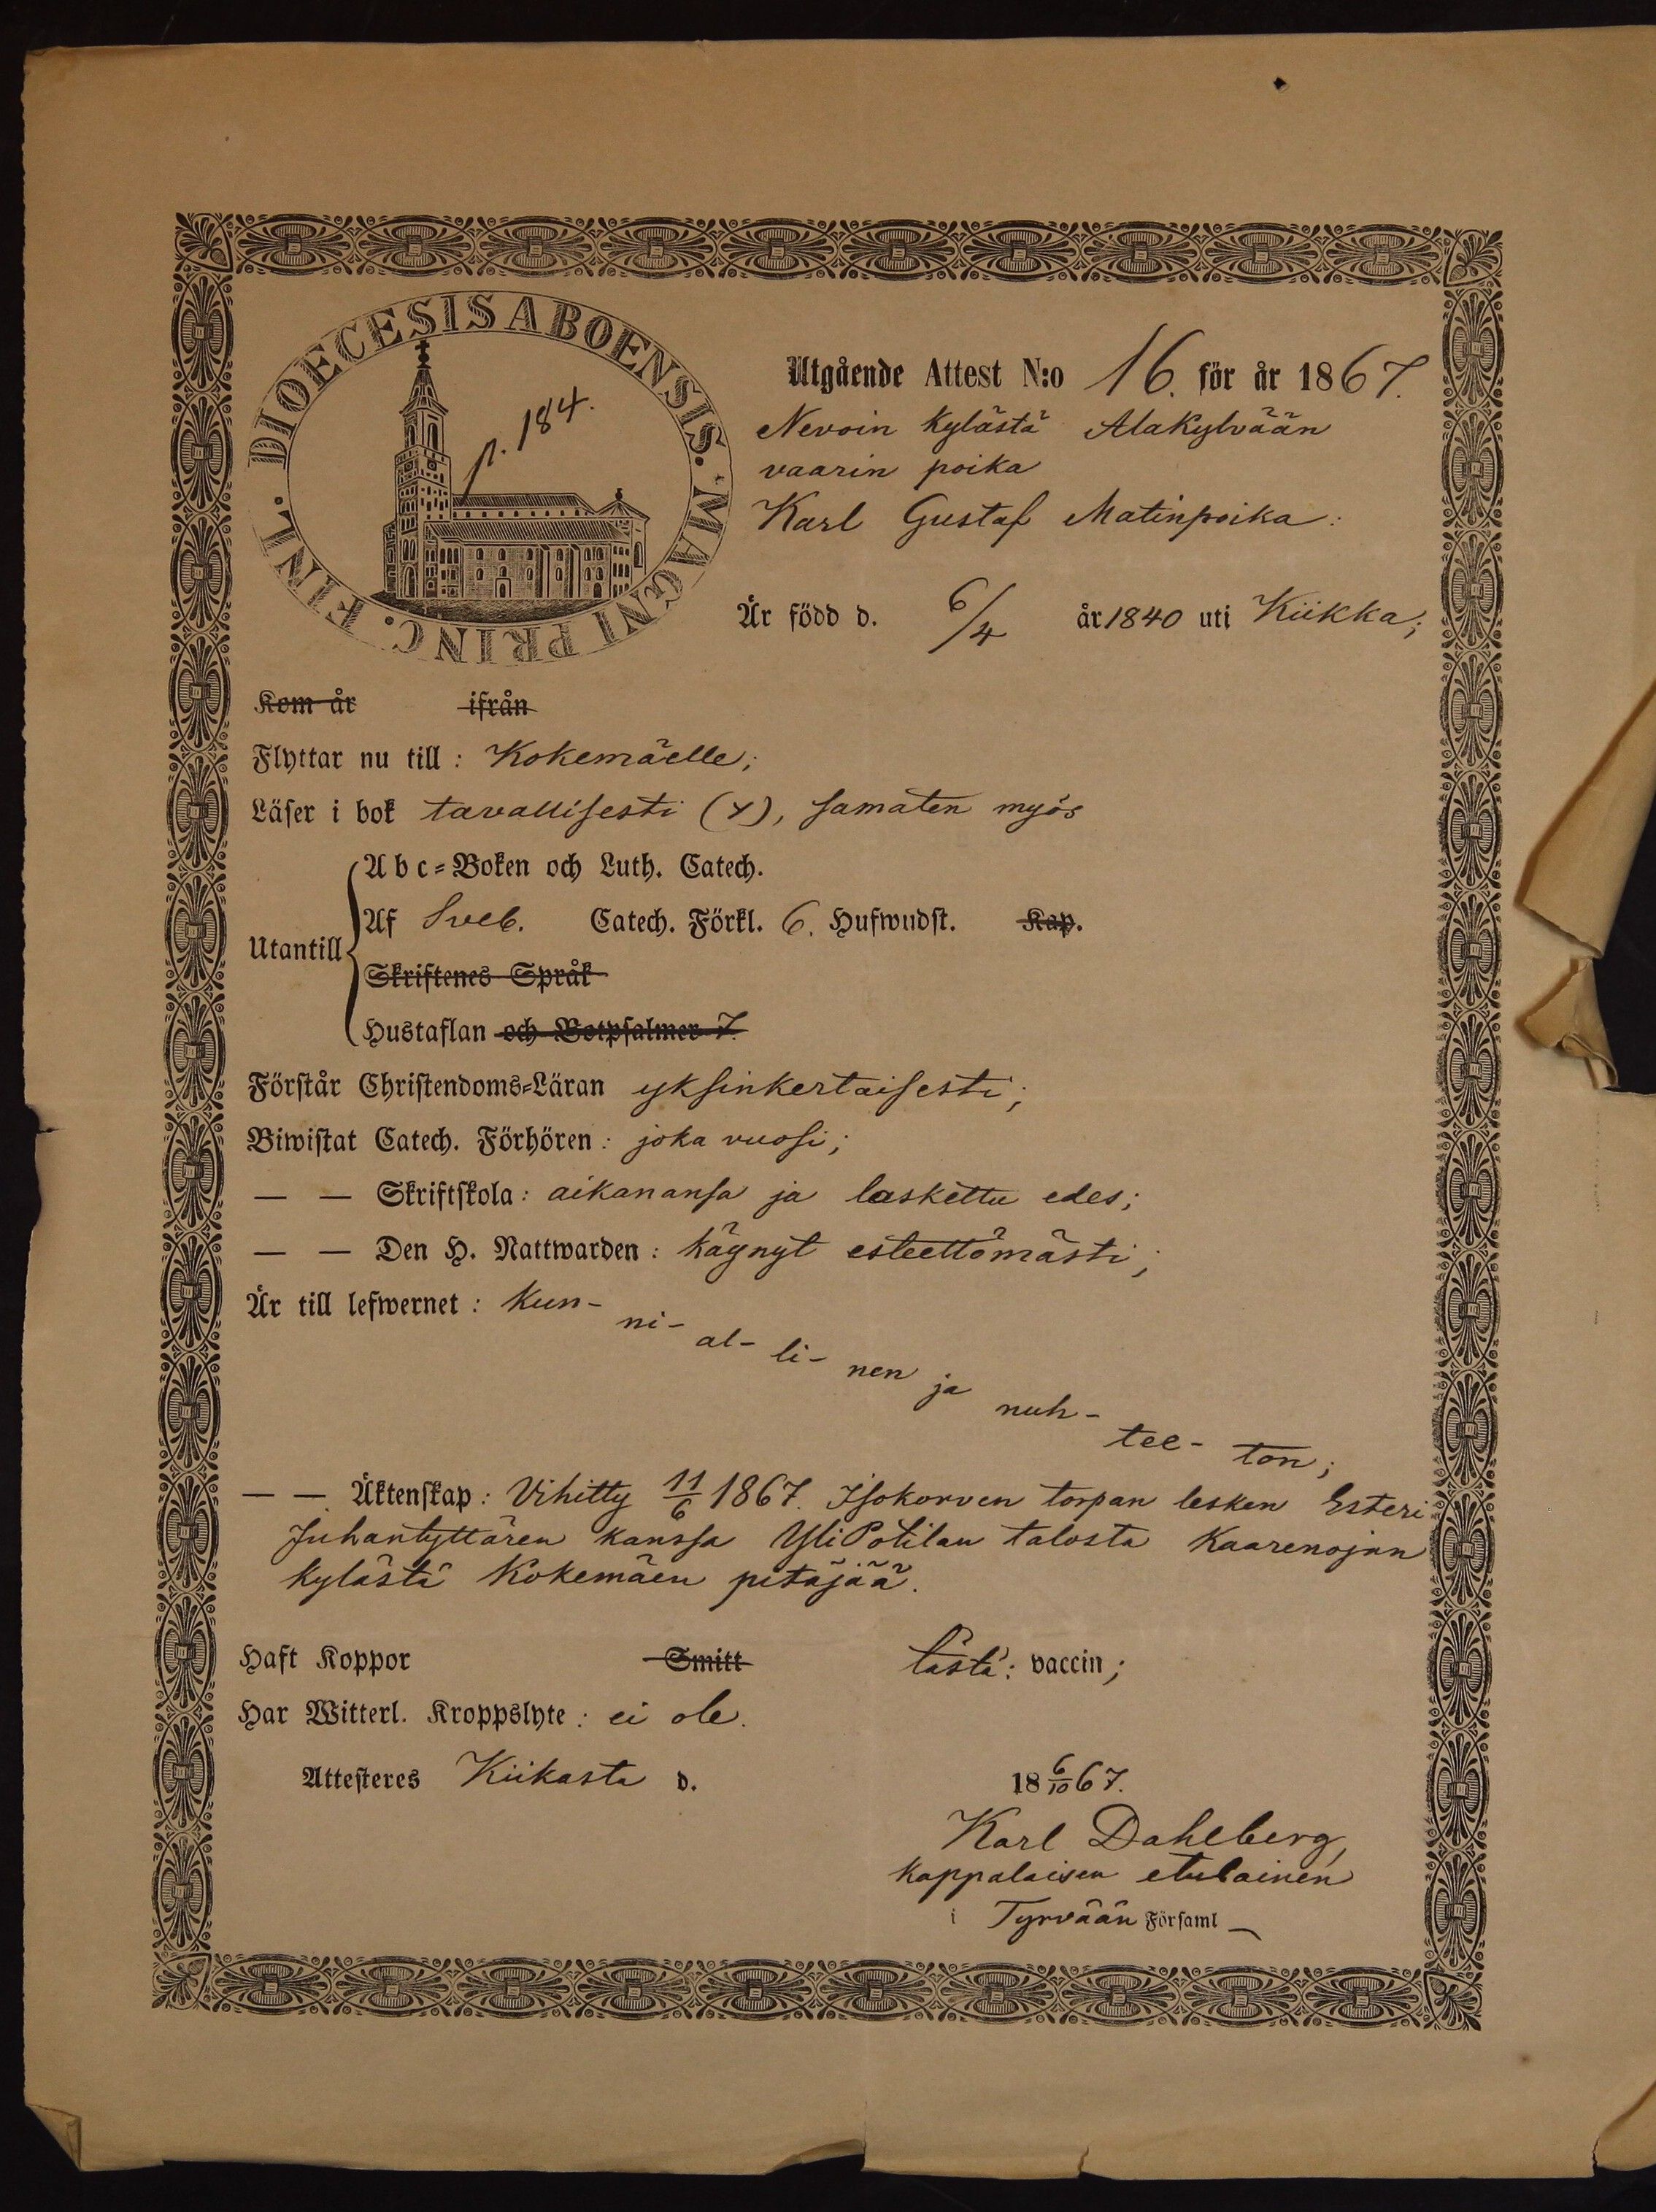 DIOECESIS ABOENSIS. MAGNI PRINC. FINL.
p. 184.
Utgående Attest N:o 16. för år 1867.
Nevoin kylästä Alakylvään
vaarin poika
Karl Gustaf Matinpoika:
Är född d. 6/4 år 1840 uti Kiikka;
Kom år ifrån
Flyttar nu till: Kokemäelle;
Läser i bok tavallisesti (y), samaten myös
Utantill
Abc-Boken och Luth. Catech.
Af Sveb. Catech. Förkl. 6. Hufwudst. Kap.
Skriftenes Språk
Hustaflan och Botpsalmer 7.
Förstår Christendoms-Läran yksinkertaisesti;
Biwistat Catech. Förhören: joka vuosi;
— — Skriftskola: aikanansa ja laskettu edes;
— — Den H. Nattwarden: käynyt esteettömästi;
Är till lefwernet: kun-
ni-
al-
li-
nen
ja
nuh-
tee-
ton;
— — Äktenskap: Vihitty 11/6 1867. Isokorven torpan lesken Esteri
Juhantyttären kanssa YliPotilan talosta Kaarenojan
kylästä Kokemäen pitäjää.
Haft Koppor Smitt tästä: vaccin;
Har Witterl. Kroppslyte: ei ole.
Attesteres Kiikasta d. 18 6/10 67.
Karl Dahlberg,
kappalaisen etulainen
i Tyrvään Församl